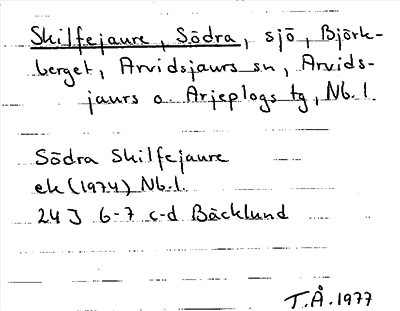 Skilfejaure, Södra, sjö, Björk-
berget, Arvidsjaurs sn, Arvids-
jaurs o. Arjeplogs tg, Nb.l.
Södra Skilfejaure
ek (1974) Nb.l.
24J 6-7 c-d Bäcklund
T.Å.1977